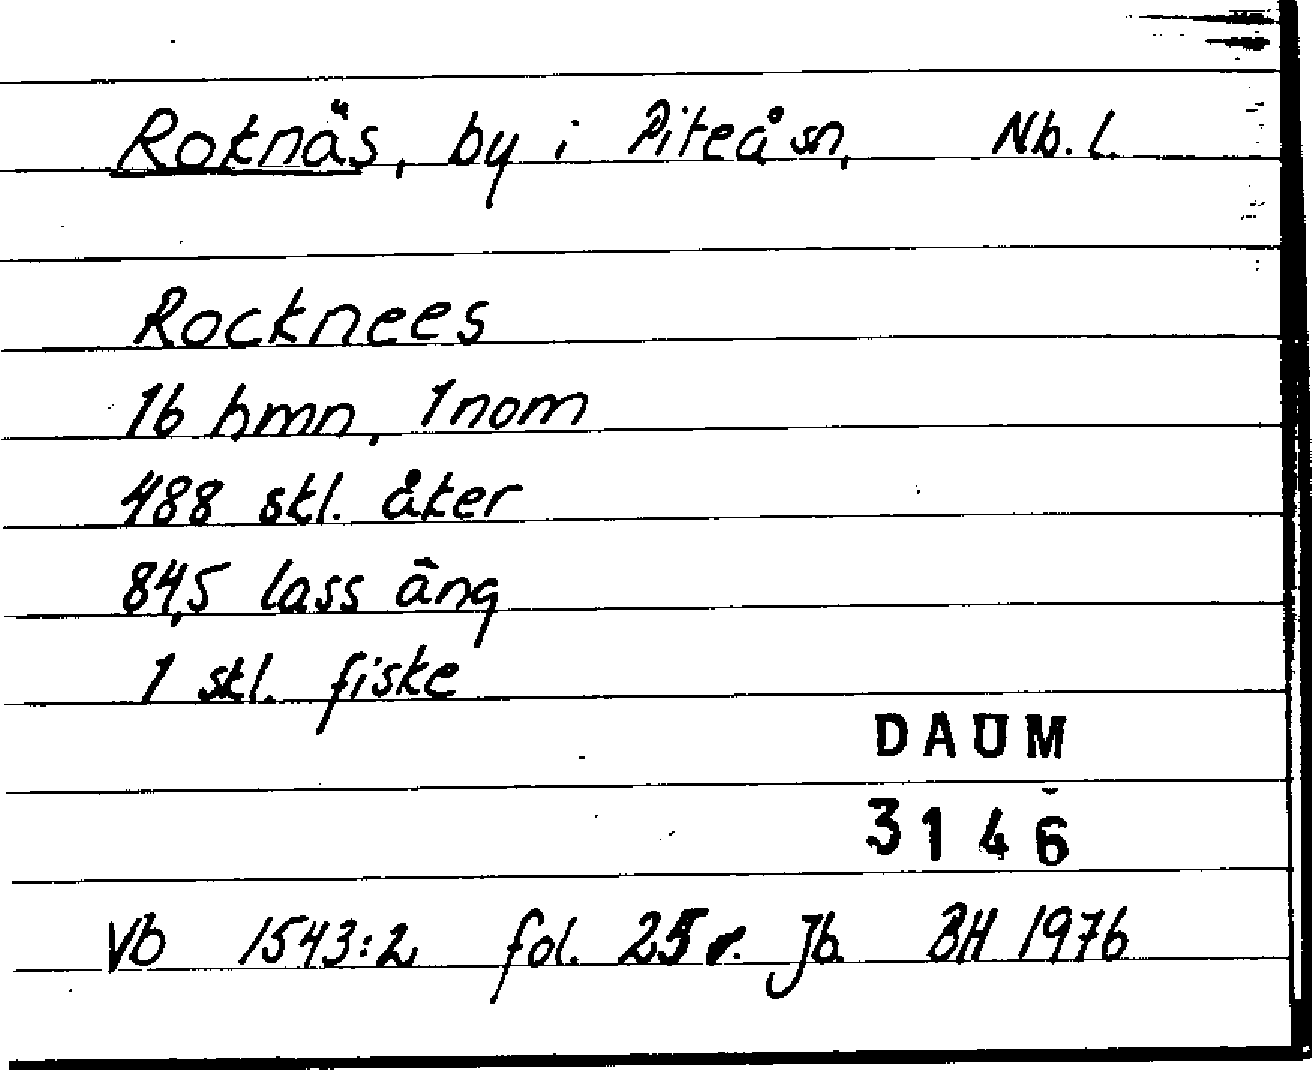 Roknäs, by i Piteå sn, Nb. l.
Rocknees
16 hmn, 1 nom
488 skl. åker
84,5 lass äng
1 skl. fiske
DAUM
3146
Vb 1543:2 fol. 25 r. Jb. BH 1976